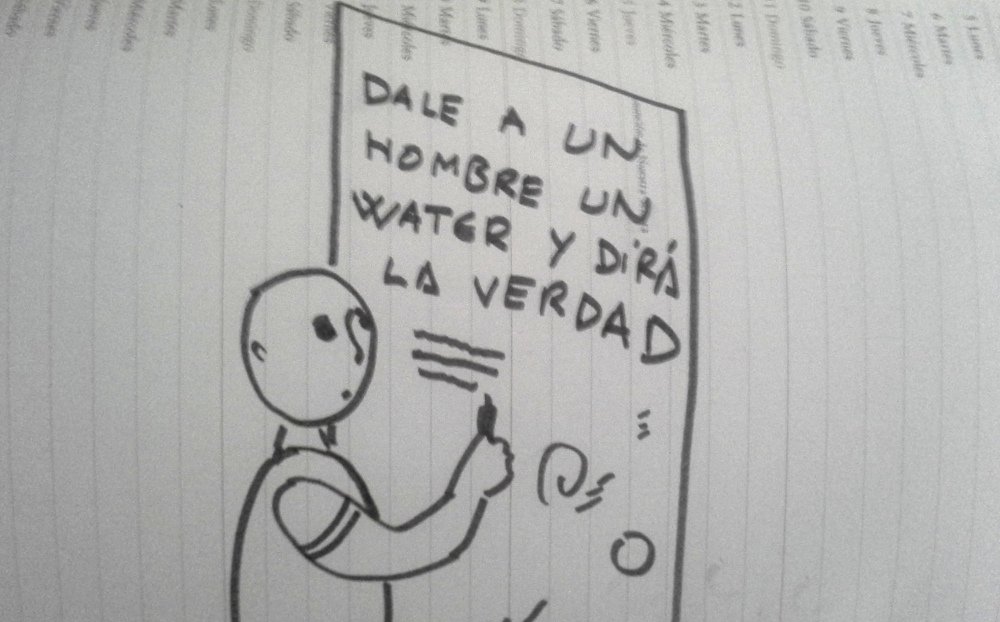 DALE A UN
HOMBRE UN
WATER Y DIRÁ
LA VERDAD
Sábado
Domingo
Lunes
Miércoles
Martes
Sábado
Domingo
Lunes
Martes
Miércoles
9 Lunes
8 Domingo
7 Sábado
6 Viernes
5 Jueves
4 Miércoles
3 Martes
2 Lunes
1 Domingo
10 Sábado
9 Viernes
8 Jueves
7 Miércoles
6 Martes
5 Lunes